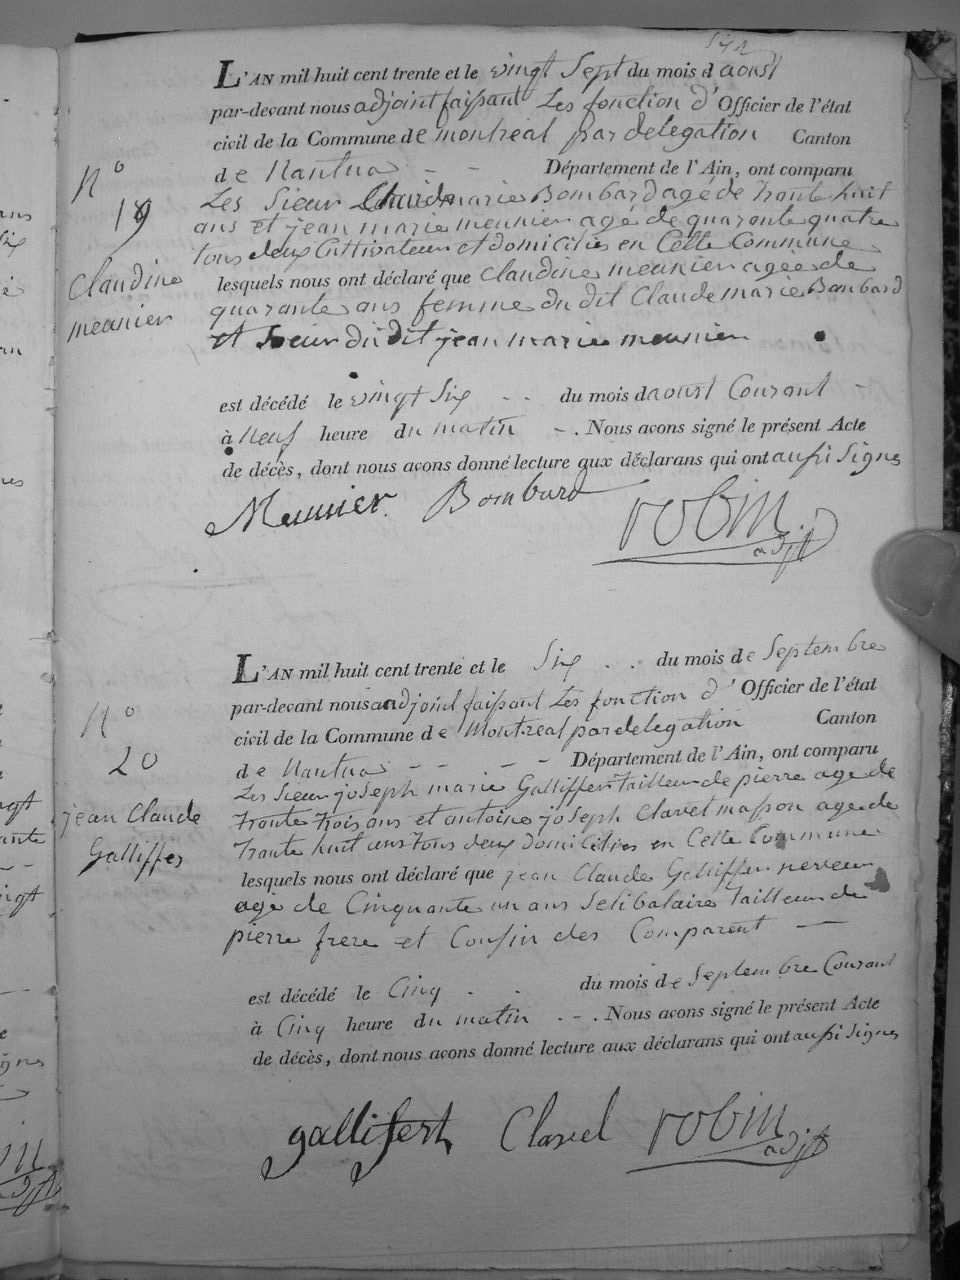 six
L'AN mil huit cent trente et le vingt Sept du mois d'aoust
par-devant nous adjoint faissant Les fonction d'Officier de l'état
civil de la Commune de montreal par delegation Canton
de Nantua - - Département de l'Ain, ont comparu
Les Sieur Claude marie Bombard agé de trante huit
ans et jean marie meunier agé de quarante quatre
tous deux Cultivateur et domicilies en Cette Commune
lesquels nous ont déclaré que Claudine meunier agée de
quarante ans femme du dit Claude marie Bombard
et Soeur du dit jean marie meunier
est décédé le vingt Six - - du mois daoust Courant -
à Neuf heure du matin - . Nous avons signé le présent Acte
de décès, dont nous avons donné lecture aux déclarans qui ont aussi Signes
Meunier Bombard robin
adjt
N°
19
Claudine
meunier
L'AN mil huit cent trente et le Six - - du mois de Septembre
par-devant nous andjoint faissant Les fonction d'Officier de l'état
civil de la Commune de Montreal par delegation Canton
de Nantua - - - - Département de l'Ain, ont comparu
Les Sieur joseph marie Galliffer tailleur de pierre age de
trante trois ans et antoine joseph Clavel masson age de
trante huit ans tous deux domicilies en Cette Commune
lesquels nous ont déclaré que jean Claude Galliffer
age de Cinquante un ans Selibataire tailleur de
pierre frere et Cousin des Comparent -
est décédé le Cinq - - du mois de Septembre Courant
à Cinq heure du matin - - . Nous avons signé le présent Acte
de décès, dont nous avons donné lecture aux déclarans qui ont aussi Signes
gallifert Clavel robin
adjt
N°
20
jean Claude
Galliffer